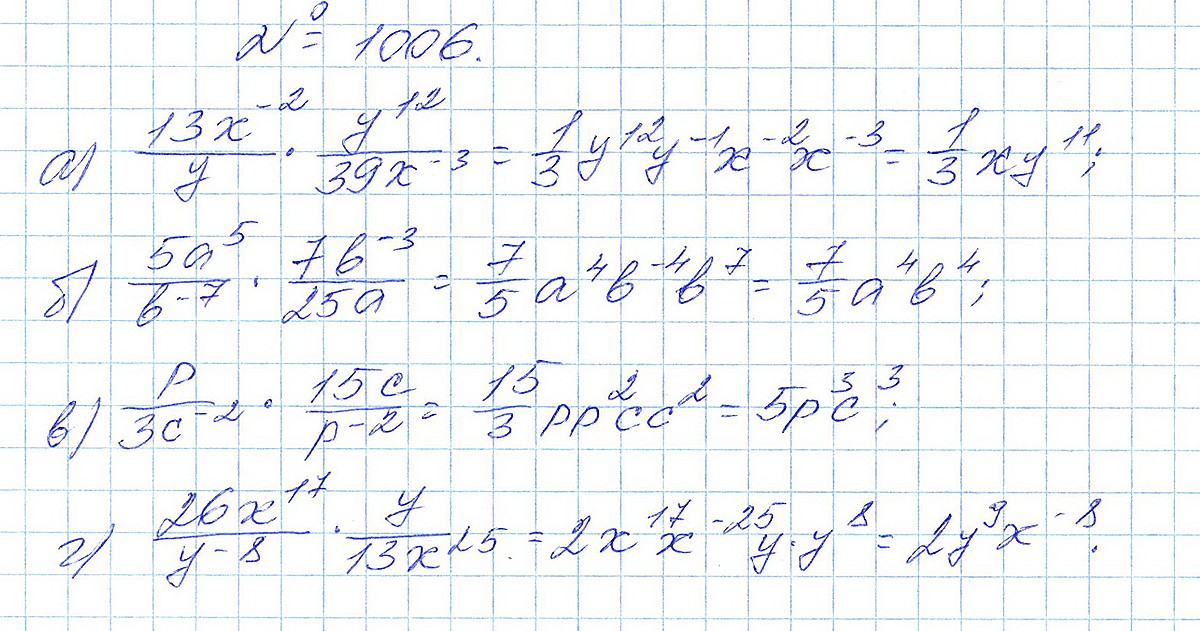 № 1006.
а) 13x⁻²/y · y¹²/39x⁻³ = 1/3 y¹²y⁻¹x⁻²x⁻³ = 1/3 xy¹¹;
б) 5a⁵/b⁻⁷ · 7b⁻³/25a = 7/5 a⁴b⁻⁴b⁷ = 7/5 a⁴b⁴;
в) p/3c⁻² · 15c/p⁻² = 15/3 pp²cc² = 5p³c³;
г) 26x¹⁷/y⁻⁸ · y/13x²⁵ = 2x¹⁷x⁻²⁵y·y⁸ = 2y⁹x⁻⁸.